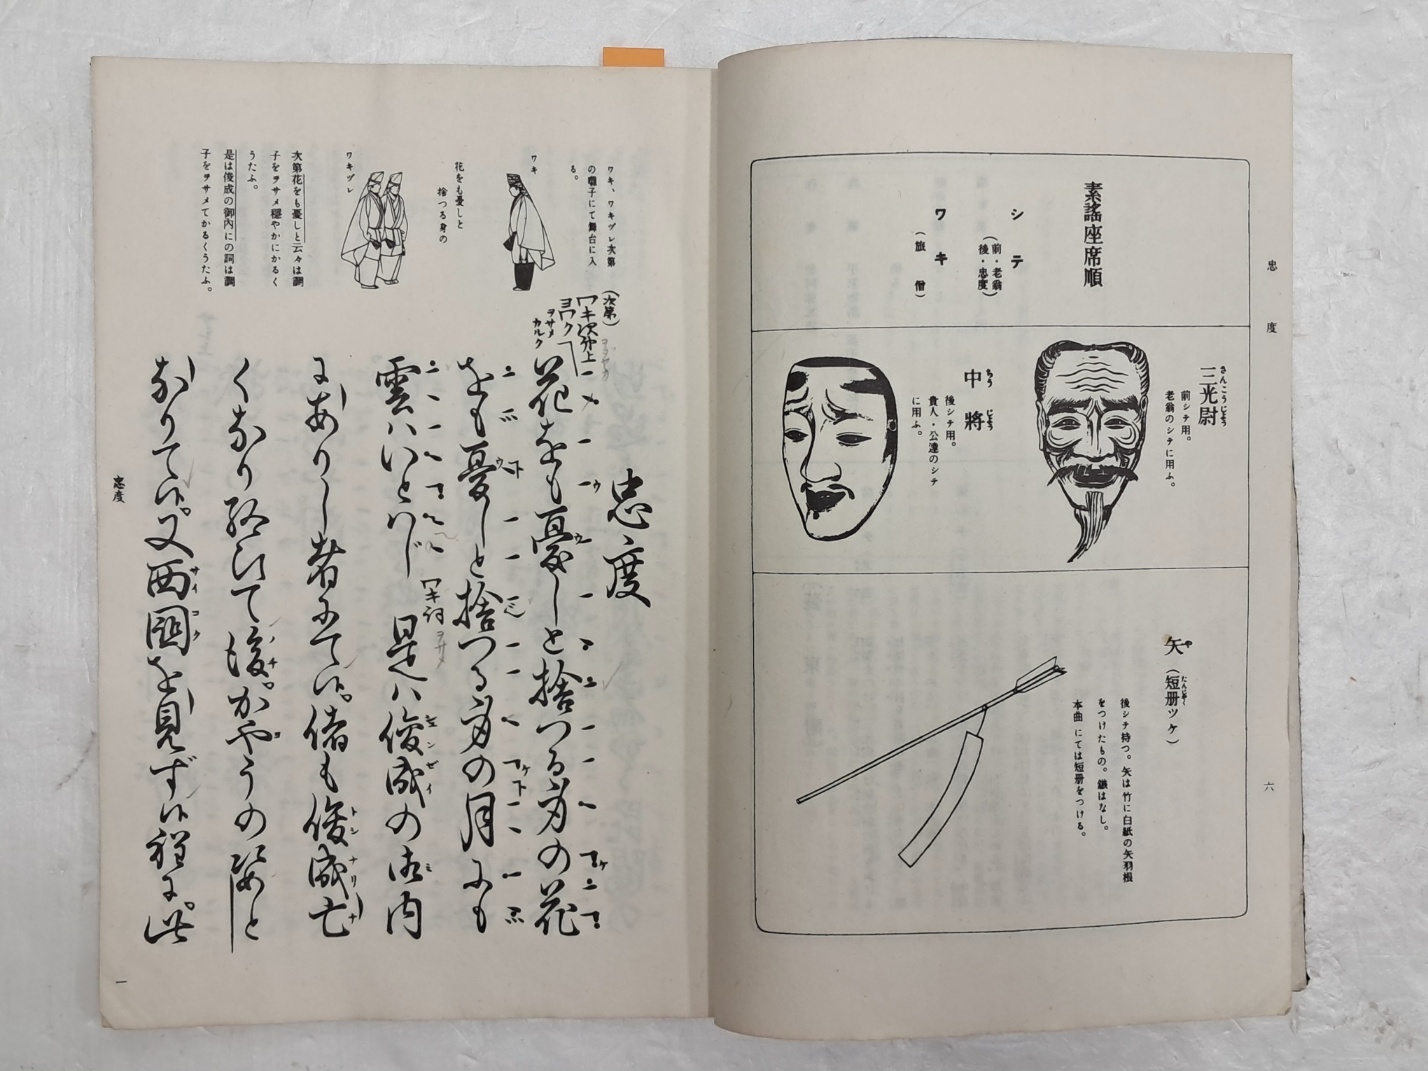 忠度
六
素謠座席順
シテ
(前・老翁
後・忠度)
ワキ
(旅僧)
三光尉
さんこうじよう
前シテ用。
老翁のシテに用ふ。
中將
ちうじよう
後シテ用。
貴人・公達のシテ
に用ふ。
矢(短册ツケ)
や たんざく
後シテ持つ。矢は竹に白紙の矢羽根
をつけたもの。鏃はなし。
本曲にては短册をつける。
ワキ、ワキヅレ次第
の囃子にて舞台に入
る。
ワキ
花をも憂しと
捨つる身の
ワキヅレ
次第花をも憂しと云々は調
子をヲサメ穩やかにかるく
うたふ。
是は俊成の御内にの詞は調
子をヲサメてかるくうたふ。
忠度
(次第)
ワキ次第上
ヨワク
ヲサメ
カルク
花をも憂しと捨つる身の花
をも憂しと捨つる身の月にも
雲ハいとハじ
ワキ詞
ヲサメ
是ハ俊成の御内
シゼイ
にありし者にて候。偖も俊成亡
トシナリ
くなり給ひて後。かやうの姿と
ノチ
なりて候。又西國を見ず候程に。此
サイコク
忠度
一